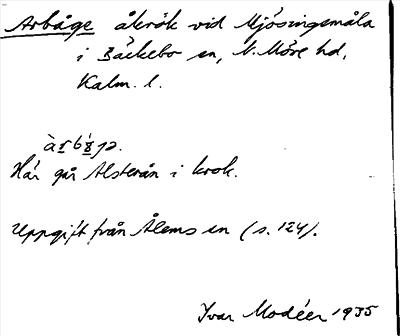 Arbåge åkrök vid Mjösingsmåla
i Bäckebo sn, N. Möre hd,
Kalm. l.
Här går Alsterån i krok.
Uppgift från Ålems sn (s. 124).
Ivar Modéer 1935